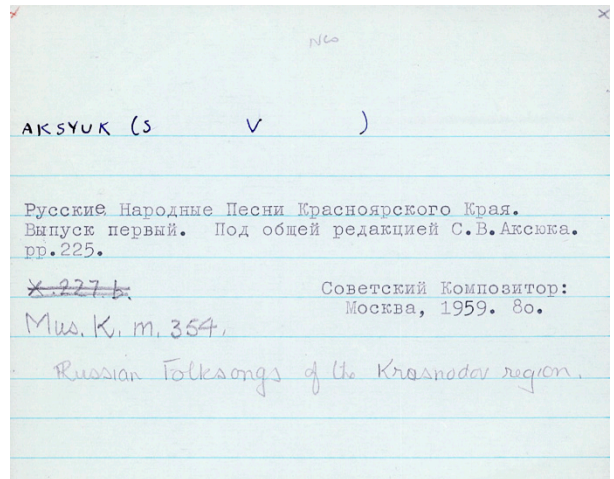 x x
NLO
AKSYUK (S V )
Русские Народные Песни Красноярского Края.
Выпуск первый. Под общей редакцией С.В.Аксюка.
pp.225.
X.227.b. Советский Композитор:
Москва, 1959. 8o.
Mus. K. m. 354.
Russian Folksongs of the Krasnodov region.